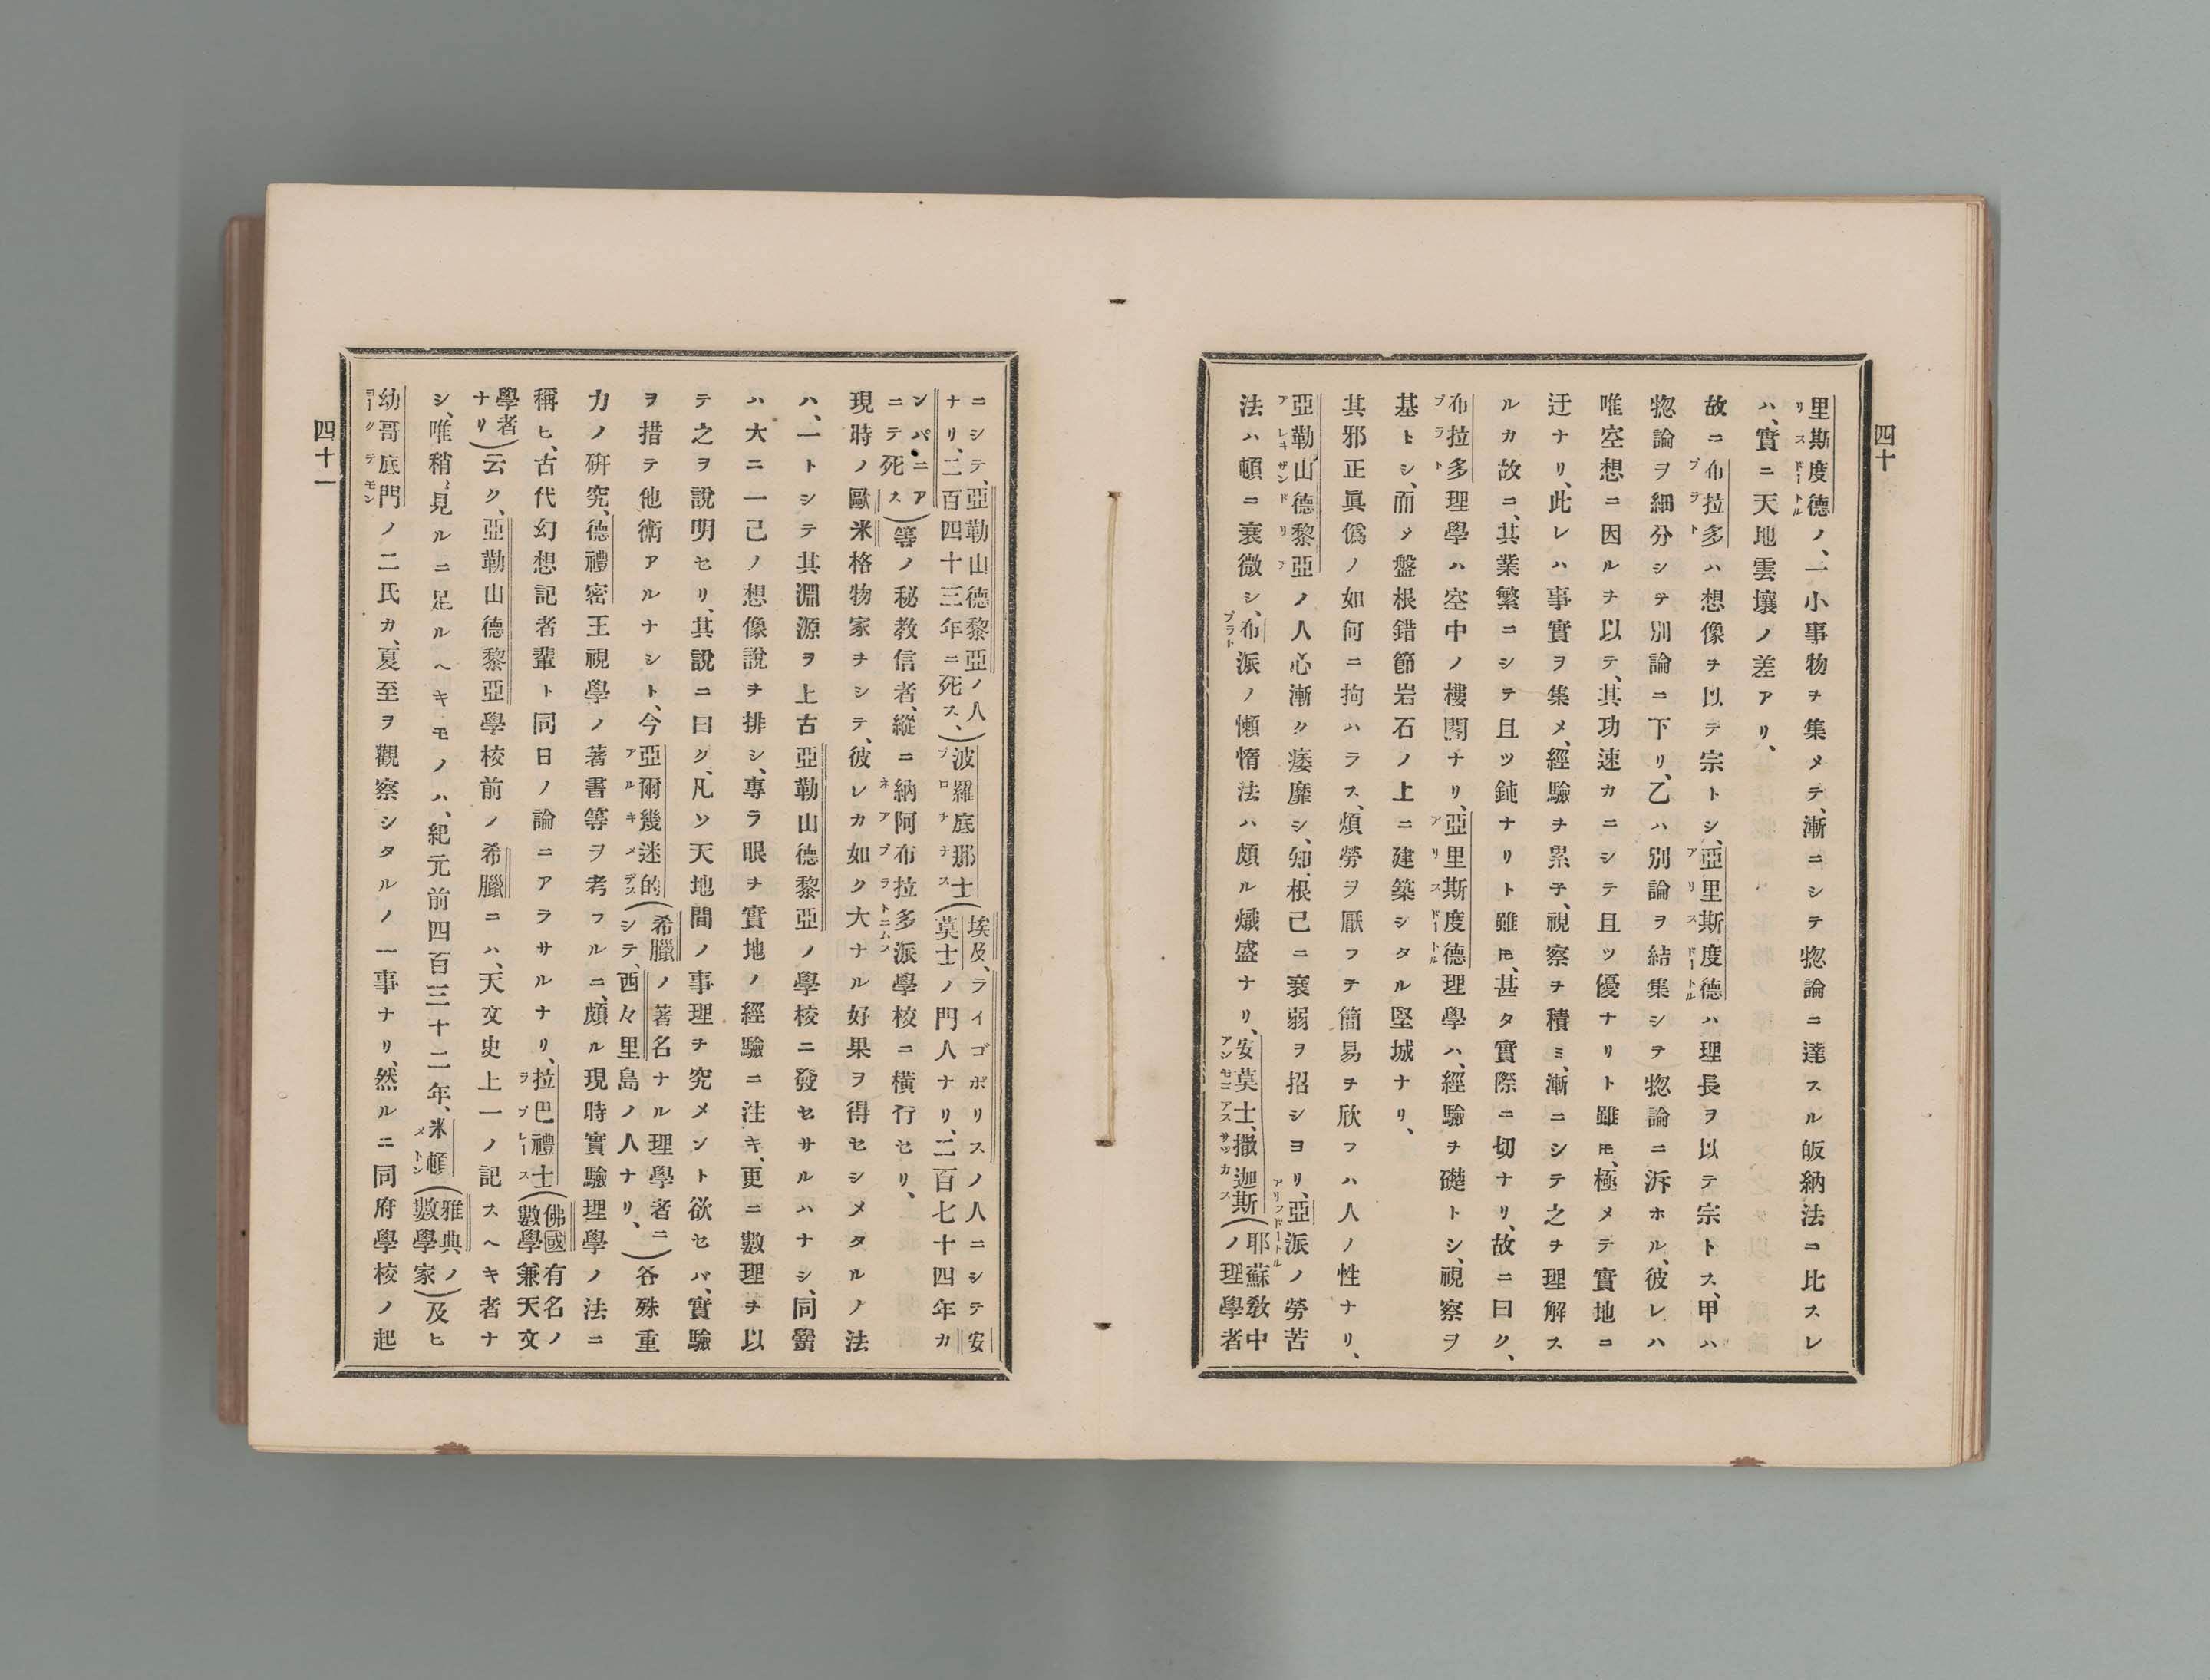 四十
里斯度德ノ、一小事物ヲ集メテ、漸ニシテ惣論ニ達スル皈納法ニ比スレ
ハ、實ニ天地雲壤ノ差アリ、
故ニ布拉多ハ想像ヲ以テ宗トシ、亞里斯度德ハ理長ヲ以テ宗トス、甲ハ
惣論ヲ細分シテ別論ニ下リ、乙ハ別論ヲ結集シテ惣論ニ泝ホル、彼レハ
唯空想ニ因ルヲ以テ、其功速カニシテ且ツ優ナリト雖モ、極メテ實地ニ
迂ナリ、此レハ事實ヲ集メ、經驗ヲ累子、視察ヲ積ミ、漸ニシテ之ヲ理解ス
ルカ故ニ、其業繁ニシテ且ツ鈍ナリト雖モ、甚タ實際ニ切ナリ、故ニ曰ク、
布拉多理學ハ空中ノ樓閣ナリ、亞里斯度德理學ハ、經驗ヲ礎トシ、視察ヲ
基トシ、而メ盤根錯節岩石ノ上ニ建築シタル堅城ナリ、
其邪正眞僞ノ如何ニ拘ハラス、煩勞ヲ厭フテ簡易ヲ欣フハ人ノ性ナリ、
亞勒山德黎亞ノ人心漸ク痿靡シ、知根已ニ衰弱ヲ招シヨリ、亞派ノ勞苦
法ハ頓ニ衰微シ、布派ノ懶惰法ハ頗ル熾盛ナリ、安莫士、撒迦斯(耶蘇敎中ノ理學者
四十一
ニシテ、亞勒山德黎亞ノ人ナリ、二百四十三年ニ死ス、)波羅底那士(埃及、ライゴポリスノ人ニシテ安莫士ノ門人ナリ、二百七十四年カ
ンパニアニテ死ス)等ノ秘教信者、縱ニ納阿布拉多派學校ニ横行セリ、
現時ノ歐米格物家ヲシテ、彼レカ如ク大ナル好果ヲ得セシメタルノ法
ハ、一トシテ其淵源ヲ上古亞勒山德黎亞ノ學校ニ發セサルハナシ、同黌
ハ大ニ一己ノ想像說ヲ排シ、專ラ眼ヲ實地ノ經驗ニ注キ、更ニ數理ヲ以
テ之ヲ說明セリ、其說ニ曰ク、凡ソ天地間ノ事理ヲ究メント欲セバ、實驗
ヲ措テ他術アルナシト、今亞爾幾迷的(希臘ノ著名ナル理學者ニシテ、西々里島ノ人ナリ、)各殊重
力ノ硏究、德禮密王視學ノ著書等ヲ考フルニ、頗ル現時實驗理學ノ法ニ
稱ヒ、古代幻想記者輩ト同日ノ論ニアラサルナリ、拉巴禮士(佛國有名ノ數學兼天文
學者ナリ)云ク、亞勒山德黎亞學校前ノ希臘ニハ、天文史上一ノ記スヘキ者ナ
シ、唯稍見ルニ足ルヘキモノハ、紀元前四百三十二年、米頓(雅典ノ數學家)及ヒ
幼哥底門ノ二氏カ、夏至ヲ觀察シタルノ一事ナリ、然ルニ同府學校ノ起